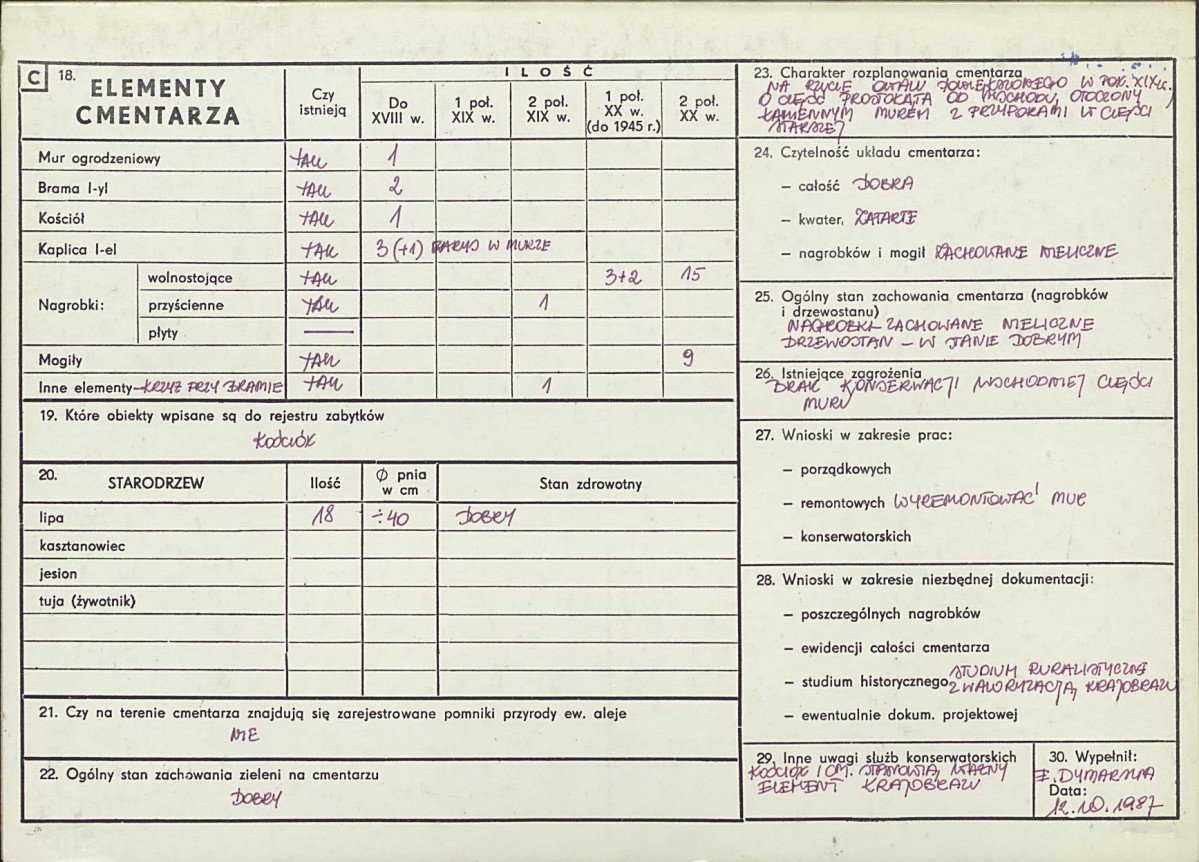 C 18. ELEMENTY CMENTARZA
Czy istnieją
ILOŚĆ
Do XVIII w.
1 poł. XIX w.
2 poł. XIX w.
1 poł. XX w. (do 1945 r.)
2 poł. XX w.
Mur ogrodzeniowy TAK 1
Brama l-yl TAK 2
Kościół TAK 1
Kaplica l-el TAK 3 (+1) ZARYS W MURZE
Nagrobki:
wolnostojące TAK 3+2 15
przyścienne TAK 1
płyty —
Mogiły TAK 9
Inne elementy – KRZYŻ PRZY BRAMIE TAK 1
19. Które obiekty wpisane są do rejestru zabytków
KOŚCIÓŁ
20. STARODRZEW Ilość Ø pnia w cm Stan zdrowotny
lipa 18 ÷40 DOBRY
kasztanowiec
jesion
tuja (żywotnik)
21. Czy na terenie cmentarza znajdują się zarejestrowane pomniki przyrody ew. aleje
NIE
22. Ogólny stan zachowania zieleni na cmentarzu
DOBRY
23. Charakter rozplanowania cmentarza
NA RZUCIE OWALU POWIĘKSZONEGO W POŁ. XIX w.
O CZĘŚĆ PROSTOKĄTA OD WSCHODU, OTOCZONY
KAMIENNYM MUREM Z PRZYPORAMI W CZĘŚCI
STARSZEJ
24. Czytelność układu cmentarza:
– całość DOBRA
– kwater, ZATARTE
– nagrobków i mogił ZACHOWANE NIELICZNE
25. Ogólny stan zachowania cmentarza (nagrobków
i drzewostanu)
NAGROBKI ZACHOWANE NIELICZNE
DRZEWOSTAN – W STANIE DOBRYM
26. Istniejące zagrożenia
BRAK KONSERWACJI WSCHODNIEJ CZĘŚCI
MURU
27. Wnioski w zakresie prac:
– porządkowych
– remontowych WYREMONTOWAĆ MUR
– konserwatorskich
28. Wnioski w zakresie niezbędnej dokumentacji:
– poszczególnych nagrobków
– ewidencji całości cmentarza
– studium historycznego STUDIUM RURALISTYCZNE
Z WALORYZACJĄ KRAJOBRAZU
– ewentualnie dokum. projektowej
29. Inne uwagi służb konserwatorskich
KOŚCIÓŁ I CM. STANOWIĄ WAŻNY
ELEMENT KRAJOBRAZU
30. Wypełnił:
E. DYMARSKA
Data:
12.10.1987